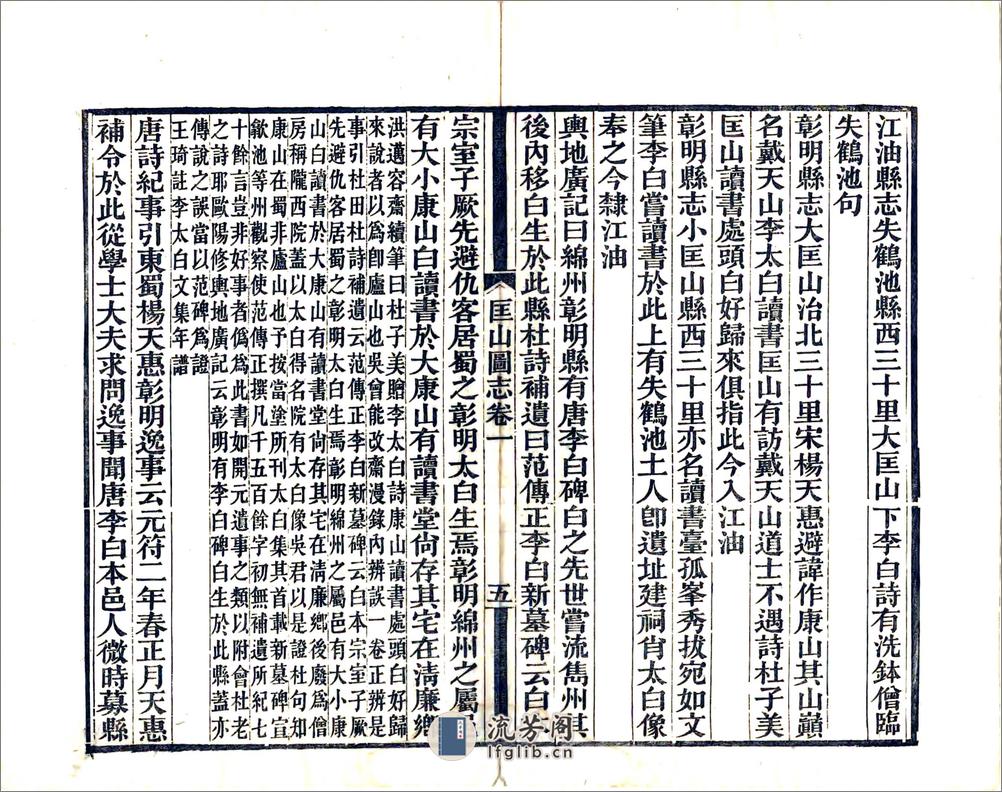 江油縣志失鶴池縣西三十里大匡山下李白詩有洗鉢僧臨
失鶴池句
彰明縣志大匡山治北三十里宋楊天惠避諱作康山其山巔
名戴天山李太白讀書匡山有訪戴天山道士不遇詩杜子美
匡山讀書處頭白好歸來俱指此今入江油
彰明縣志小匡山縣西三十里亦名讀書臺孤峯秀拔宛如文
筆李白嘗讀書於此上有失鶴池土人卽遺址建祠肖太白像
奉之今隸江油
輿地廣記曰綿州彰明縣有唐李白碑白之先世嘗流雋州其
後內移白生於此縣杜詩補遺曰范傳正李白新墓碑云白
匡山圖志卷一
五
宗室子厥先避仇客居蜀之彰明太白生焉彰明綿州之屬
有大小康山白讀書於大康山有讀書堂尙存其宅在淸廉鄉
洪邁容齋續筆曰杜子美贈李太白詩康山讀書處頭白好歸
來說者以爲卽廬山也吳曾能改齋漫錄內辨誤一卷正辨是
事引杜田杜詩補遺云范傳正李白新墓碑云白本宗室子厥
先避仇客居蜀之彰明太白生焉彰明綿州之屬邑有大小康
山白讀書於大康山有讀書堂尙存其宅在淸廉鄉後廢爲僧
房稱隴西院蓋以太白得名院有太白像吳君以是證杜句知
康山在蜀非廬山也予按當塗所刊太白集其首載新墓碑宣
歙池等州觀察使范傳正撰凡千五百餘字初無補遺所紀七
十餘言豈非好事者僞爲此書如開元遺事之類以附會杜老
之詩耶歐陽修輿地廣記云彰明有李白碑白生於此縣蓋亦
傳說之誤當以范碑爲證
王琦註李太白文集年譜
唐詩紀事引東蜀楊天惠彰明逸事云元符二年春正月天惠
補令於此從學士大夫求問逸事聞唐李白本邑人微時募縣
流芳阁
lfglib.cn